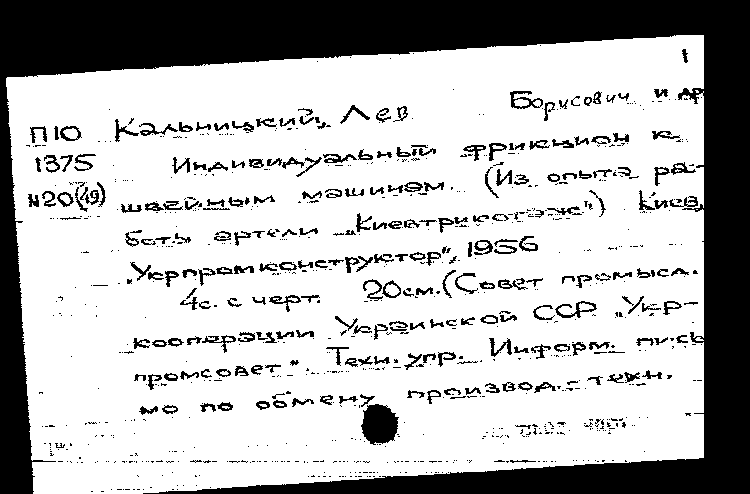 1
П10 Кальницкий, Лев Борисович и др
1375 Индивидуальный фрикцион к
N20(49) швейным машинам. (Из опыта ра-
боты артели „Киевтрикотаж") Киев,
„Укрпромконструктор", 1956
4с. с черт. 20см. (Совет промысл.
кооперации Украинской ССР „Укр-
промсовет". Техн. упр. Информ. письь
мо по обмену производ.-техн.